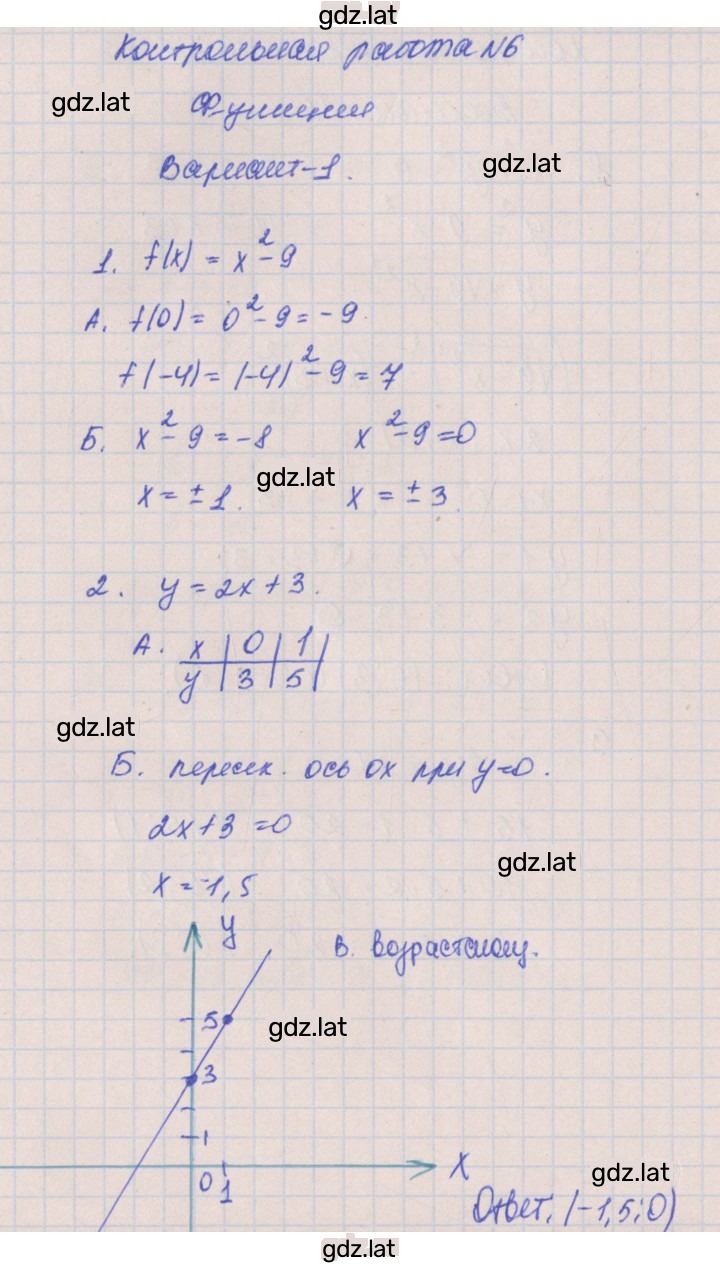 gdz.lat
Контрольная работа №6
gdz.lat
Функция
Вариант-1.
gdz.lat
1. f(x) = x² - 9
А. f(0) = 0² - 9 = -9.
f(-4) = (-4)² - 9 = 7
Б. x² - 9 = -8 x² - 9 = 0
gdz.lat
x = ± 1. x = ± 3.
2. y = 2x + 3.
А. x | 0 | 1 |
y | 3 | 5 |
gdz.lat
Б. пересек. ось ох при y=0.
2x+3 = 0
gdz.lat
x = -1,5
y
В. возрастающ.
5
gdz.lat
3
1
x
gdz.lat
0 1
Ответ: (-1,5;0)
gdz.lat